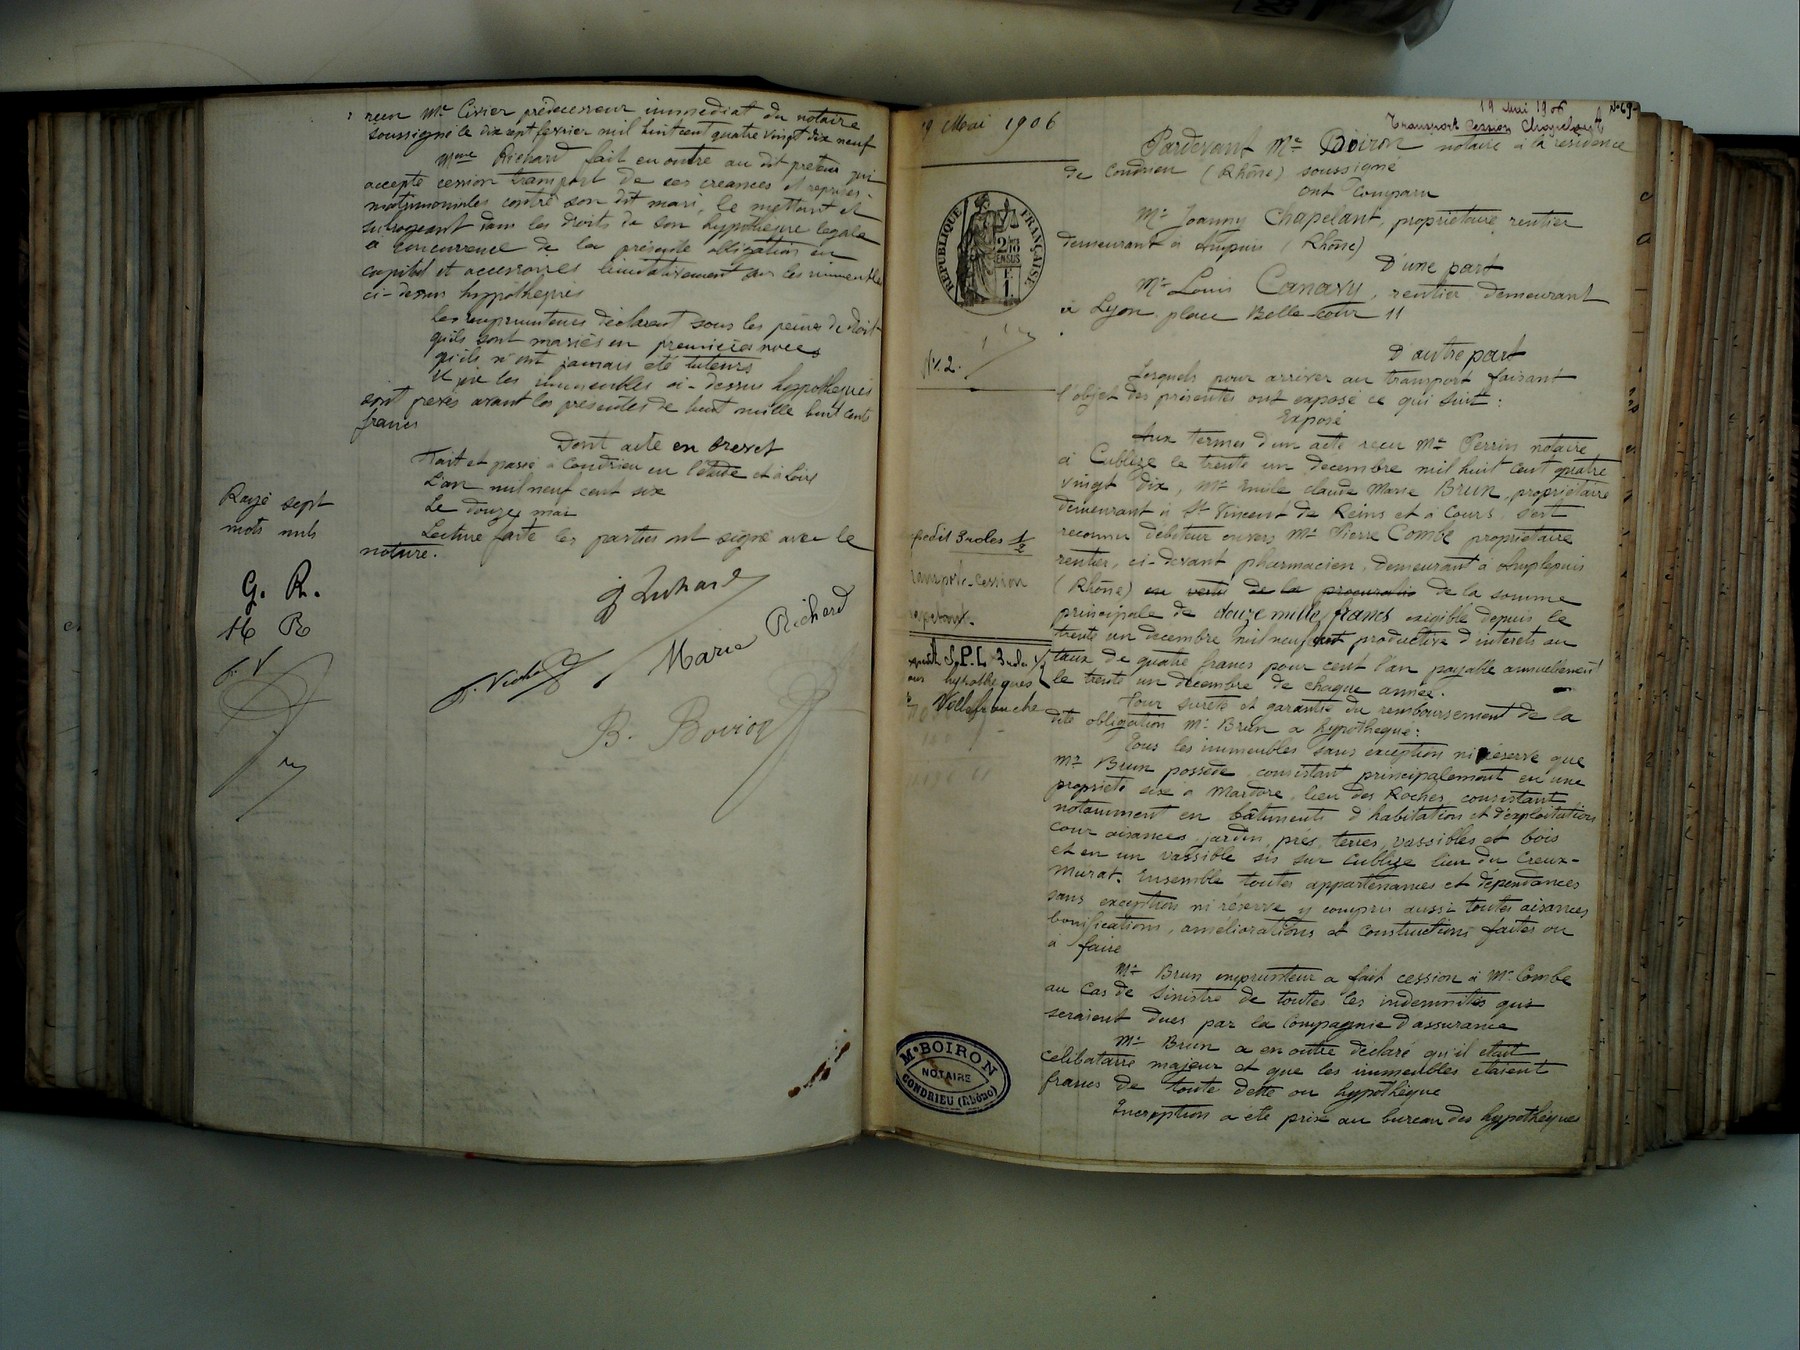 reçu Me Civier prédécesseur immédiat du notaire
soussigné le dix sept février mil huit cent quatre vingt dix neuf
Mme Richard fait en outre au dit prêteur qui
accepte cession transport de ses créances et reprises
matrimoniales contre son dit mari, le mettant et
subrogeant dans les droits de son hypothèque légale
à concurrence de la présente obligation en
capital et accessoires limitativement sur les immeubles
ci-dessus hypothéqués
Les emprunteurs déclarent sous les peines de droit
qu'ils sont mariés en premières noces
qu'ils n'ont jamais été tuteurs
et que les immeubles ci-dessus hypothéqués
sont grevés avant les présentes de huit mille huit cents
francs
Dont acte en brevet
Fait et passé à Condrieu en l'étude et à Loire
L'an mil neuf cent six
Le douze mai
Lecture faite les parties ont signé avec le
notaire.
Rayé sept
mots nuls
G. R.
M R
J. V
G Richard
Marie Richard
B. Boiron
19 Mai 1906
19 Mai 1906
No 69
Transport Cession Chapelant
Pardevant Me Boiron notaire à la résidence
de Condrieu (Rhône) soussigné
ont Comparu
Mr Joanny Chapelant, propriétaire rentier
demeurant à Ampuis (Rhône)
D'une part
Mr Louis Canavy, rentier demeurant
à Lyon place Belle-cour 11
D'autre part
Lesquels pour arriver au transport faisant
l'objet des présentes ont exposé ce qui suit :
Exposé
Aux termes d'un acte reçu Me Perrin notaire
à Cublize le trente un décembre mil huit cent quatre
vingt dix, Mr Emile Claude Marie Brun, propriétaire
demeurant à St Vincent de Reins et à Cours, s'est
reconnu débiteur envers Mr Pierre Combe propriétaire
rentier, ci-devant pharmacien, demeurant à Amplepuis
(Rhône) en vertu de la procuration de la somme
principale de douze mille francs exigible depuis le
trente un décembre mil neuf cent productive d'intérêts au
taux de quatre francs pour cent l'an payable annuellement
le trente un décembre de chaque année.
Pour sûreté et garantie du remboursement de la
dite obligation Mr Brun a hypothéqué :
Tous les immeubles sans exception ni réserve que
Mr Brun possède, consistant principalement en une
propriété sise à Mardore, lieu des Roches, consistant
notamment en bâtiments d'habitation et d'exploitation
cour aisances, jardin, prés, terres, vassibles et bois
et en un vassible sis sur Cublize lieu du Creux-
Murat. Ensemble toutes appartenances et dépendances
sans exception ni réserve y compris aussi toutes aisances
bonifications, améliorations et constructions faites ou
à faire
Mr Brun emprunteur a fait cession à Mr Combe
au cas de sinistre de toutes les indemnités qui
seraient dues par la Compagnie d'assurance
Mr Brun a en outre déclaré qu'il était
célibataire majeur et que les immeubles étaient
francs de toute dette ou hypothèque
Inscription a été prise au bureau des hypothèques
RÉPUBLIQUE FRANÇAISE
No 2.
expédié 3 roles 1/2
transport-cession
hypothèques
Villefranche
Me BOIRON
NOTAIRE
CONDRIEU (Rhône)